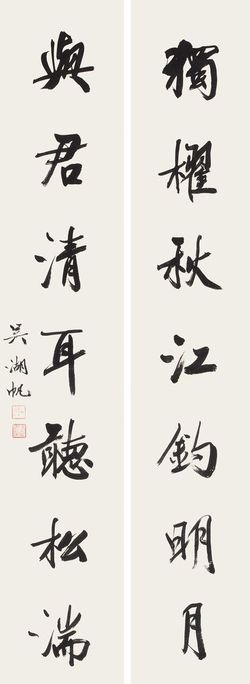 獨櫂秋江釣明月
與君清耳聽松湍
吳湖帆